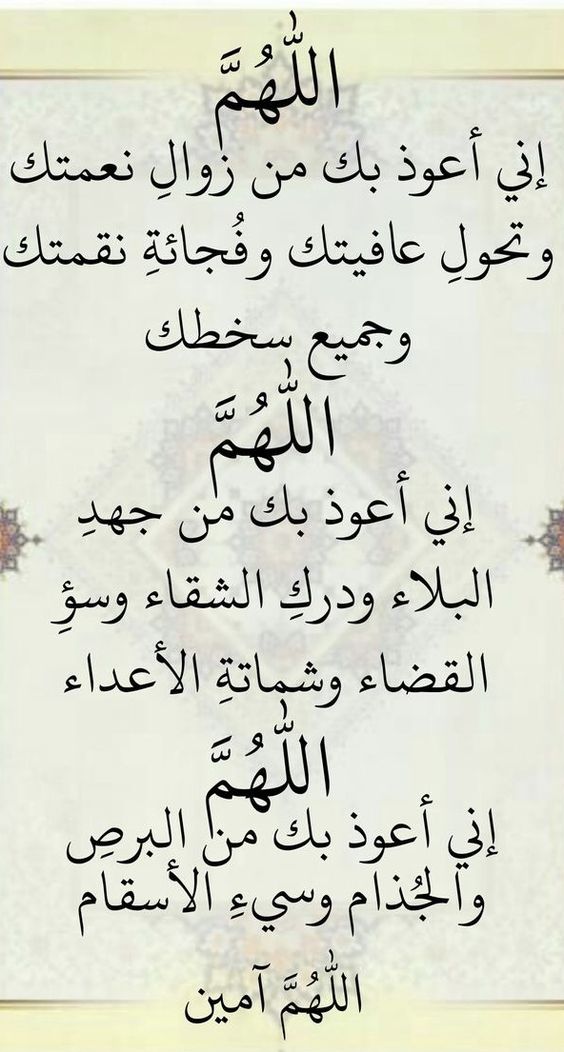 اللّٰهُمَّ
إني أعوذ بك من زوالِ نعمتك
وتحولِ عافيتك وفُجائةِ نقمتك
وجميع سخطك
اللّٰهُمَّ
إني أعوذ بك من جهدِ
البلاء ودركِ الشقاء وسؤِ
القضاء وشماتةِ الأعداء
اللّٰهُمَّ
إني أعوذ بك من البرصِ
والجُذام وسيءِ الأسقام
اللّٰهُمَّ آمين